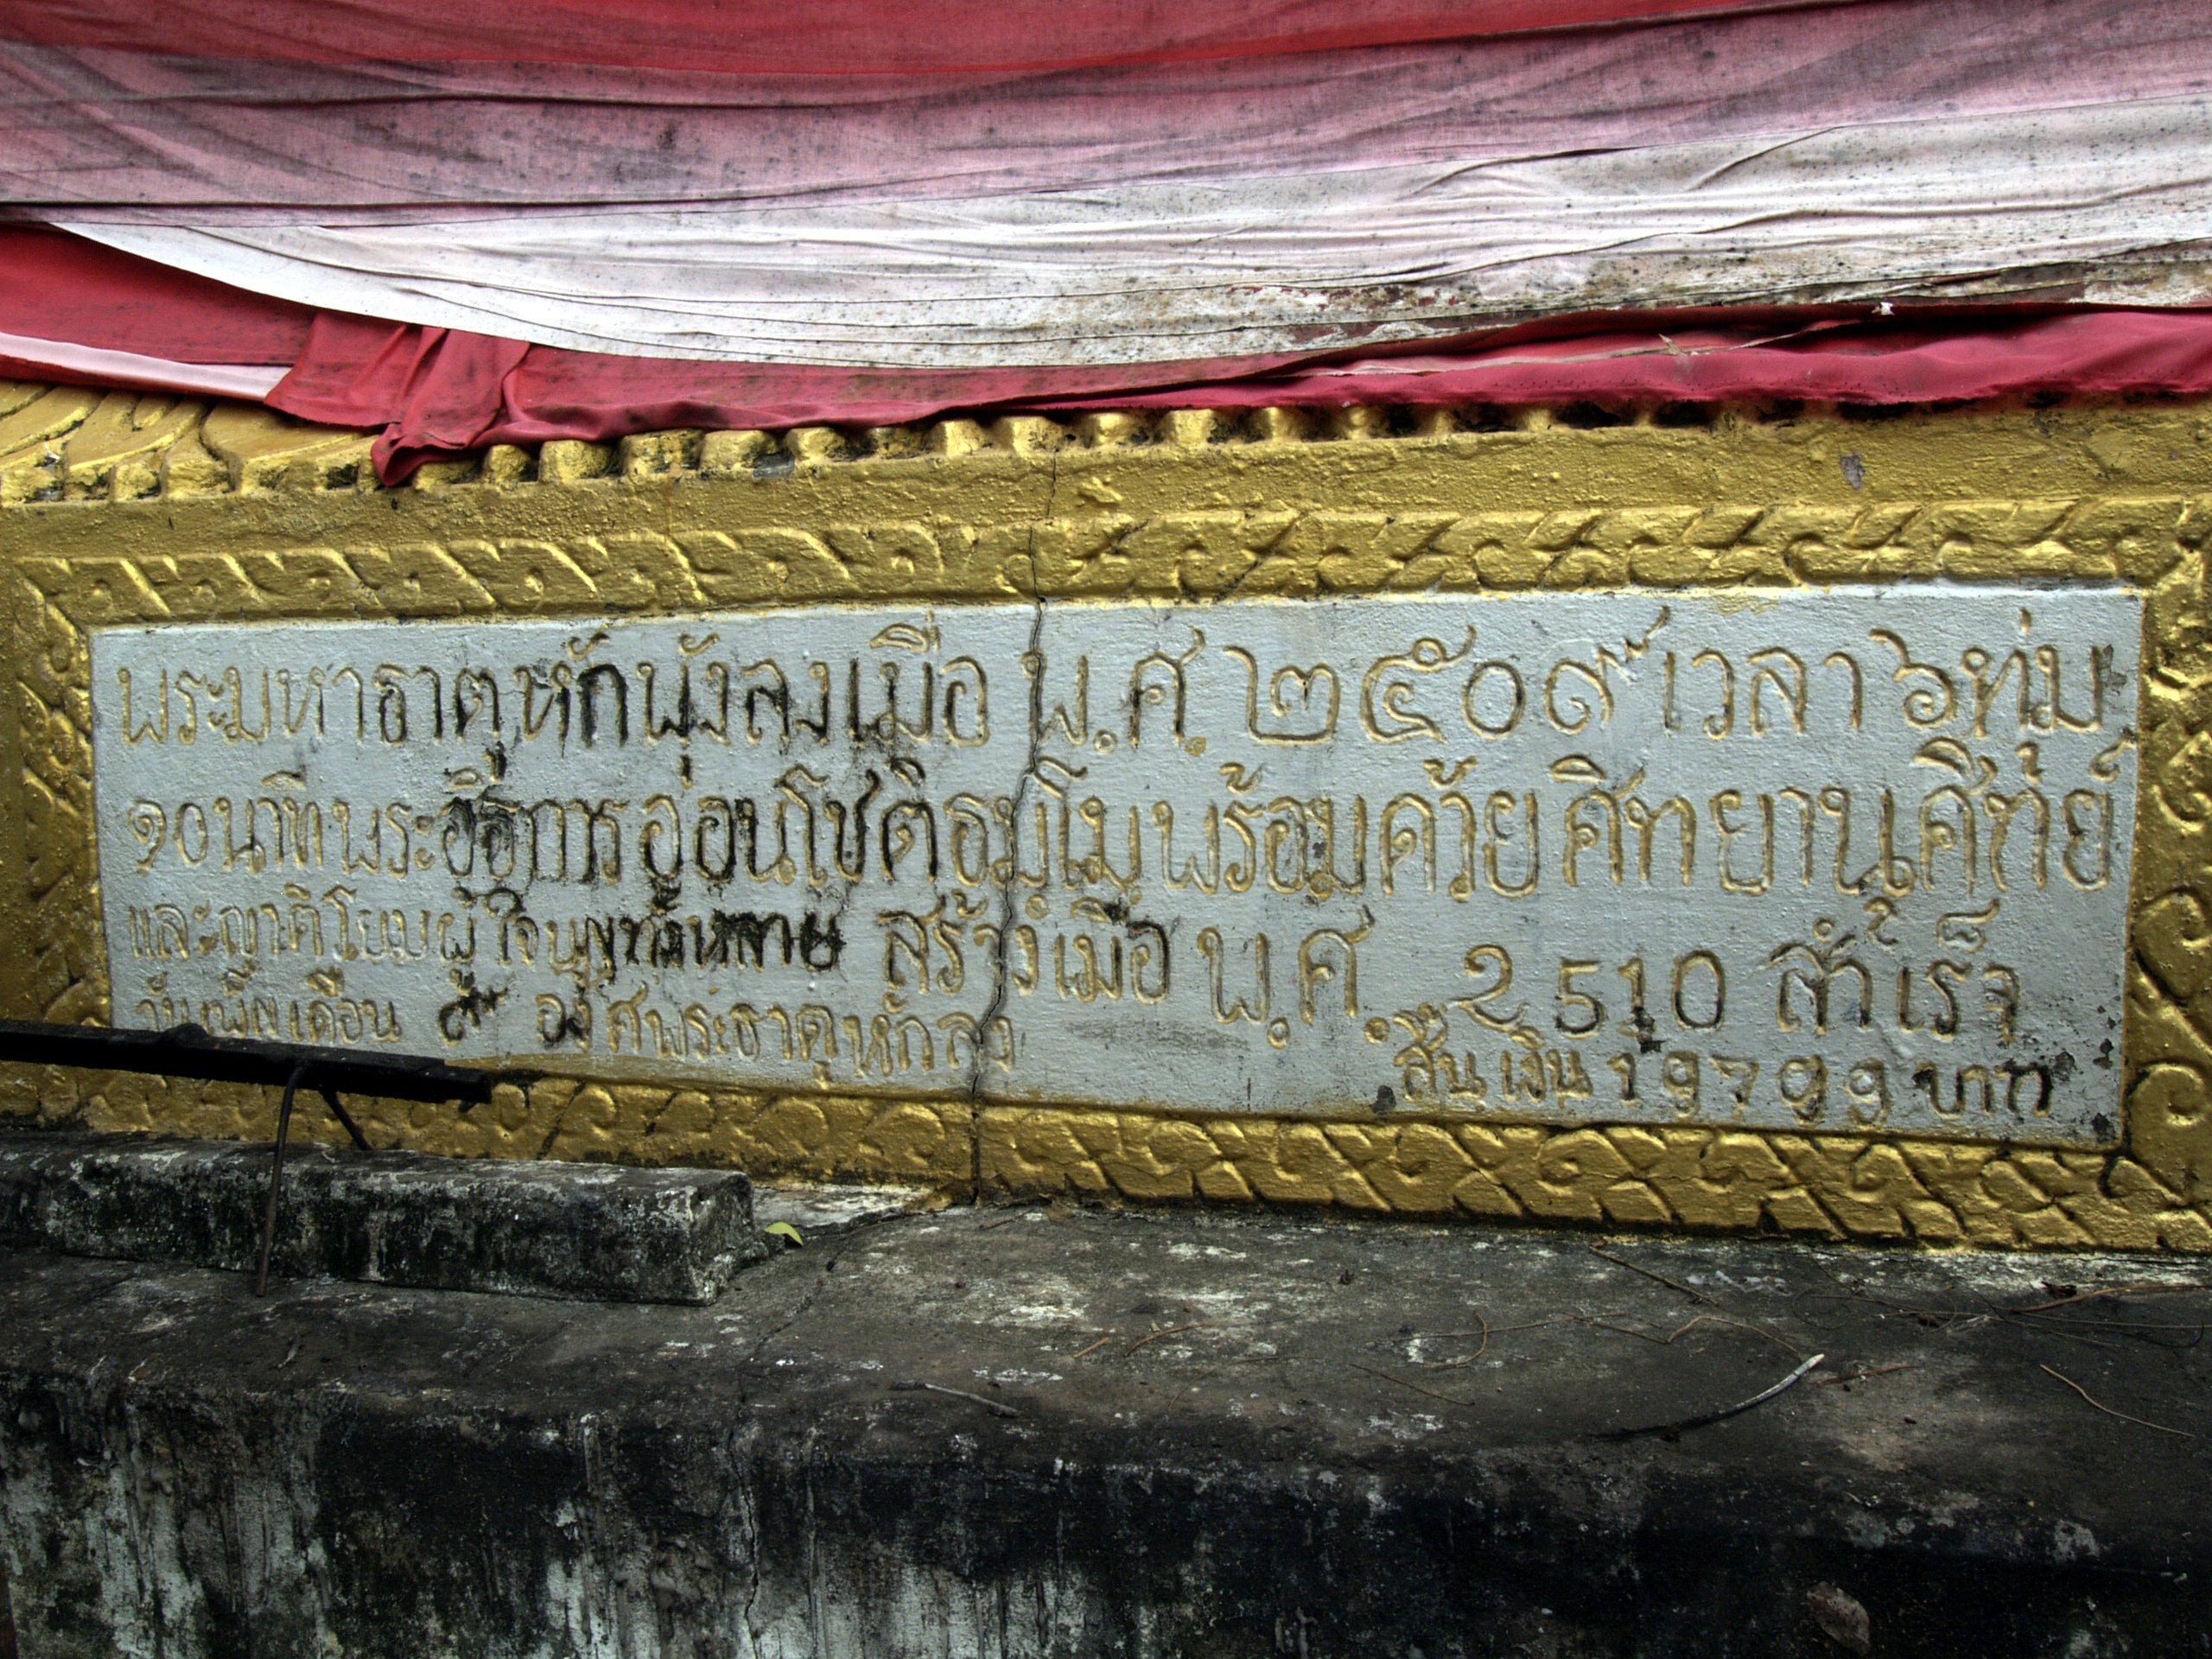 พระมหาธาตุหักพังลงเมื่อ พ.ศ. ๒๕๐๙ เวลา ๖ ทุ่ม
๑๐ นาที พระอธิการอ่อนโชติธมฺโม พร้อมด้วยศิทยานุศิทุย์
และญาติโยมผู้ใจบุญทั้งหลาย สร้างเมื่อ พ.ศ. 2510 สำเร็จ
เดือน ๙ องศ์พระธาตุหักลง สิ้นเงิน 19799 บาท